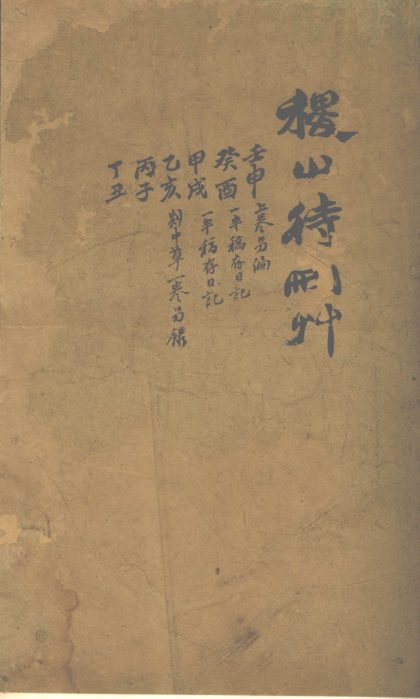 稷山待刪艸
壬申 上卷另編
癸酉 一年稿存日記
甲戌 一年稿存日記
乙亥 劄中草一卷另錄
丙子
丁丑